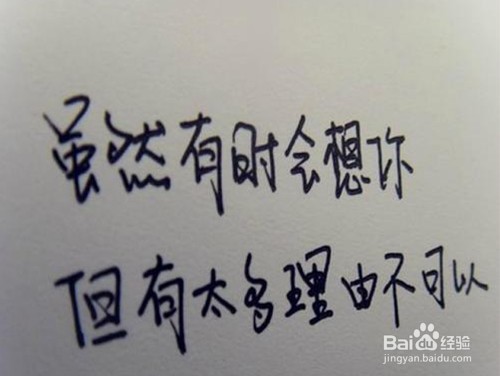 虽然有时会想你
但有太多理由不可以
Baidu经验
jingyan.baidu.com